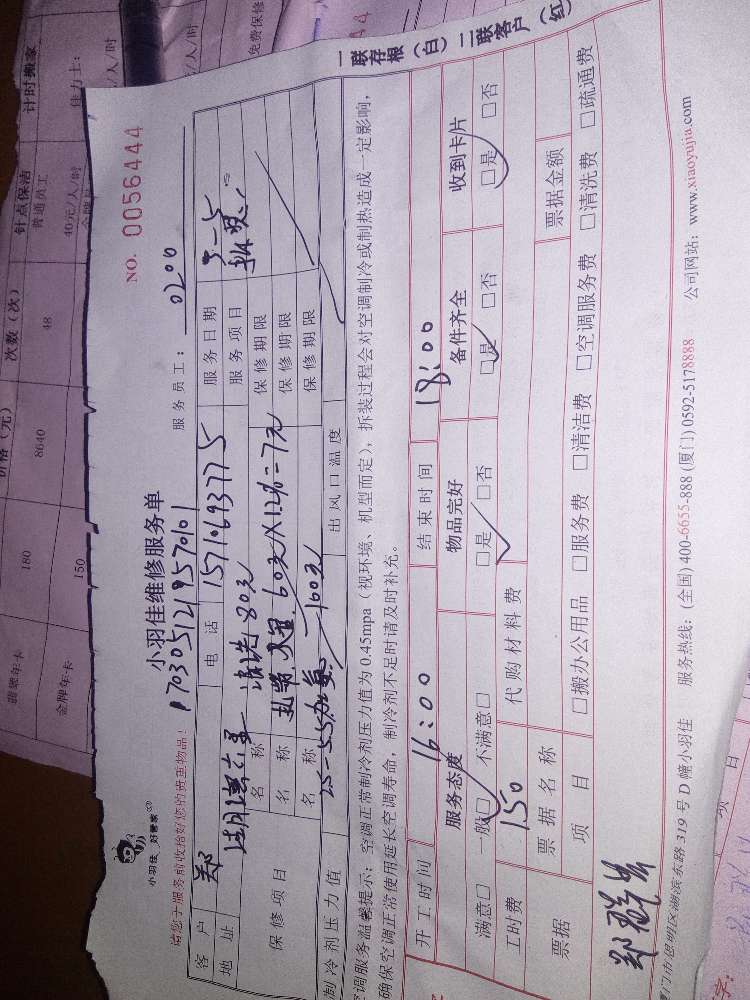 小羽佳 好管家
小羽佳维修服务单
NO. 0056444
请您于服务前收拾好您的贵重物品！
服务员工： 0200
客户 郑 电话 15710693775 服务日期 3-5
地址 服务项目
保修项目
名称 清洗 80元 保修期限
名称 保修期限
名称 保修期限
制冷剂压力值 出风口温度
空调服务温馨提示：空调正常制冷剂压力值为0.45mpa（视环境、机型而定），拆装过程会对空调制冷或制热造成一定影响，
确保空调正常使用延长空调寿命，制冷剂不足时请及时补充。
开工时间 16:00 结束时间 18:00
服务态度 物品完好 备件齐全 收到卡片
满意□ 一般□ 不满意□ □是 □否 □是 □否 □是 □否
工时费 150 代购材料费
票据 票据名称 票据金额
项目 □搬办公用品 □服务费 □清洁费 □空调服务费 □清洗费 □疏通费
门市思明区湖滨东路319号D幢小羽佳 服务热线：(全国) 400-6655-888 (厦门) 0592-5178888 公司网站：www.xiaoyujia.com
一联存根（白） 二联客户（红）
翡翠年卡 180 8640 48
金牌年卡 150
价格（元） 次数（次）
针点保洁
普通员工
40元/人/时
计时搬家
佳力士：
元/人/时
免费保修